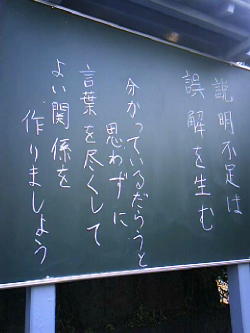 説明不足は
誤解を生む
分かっているだろうと
思わずに
言葉を尽くして
よい関係を
作りましょう